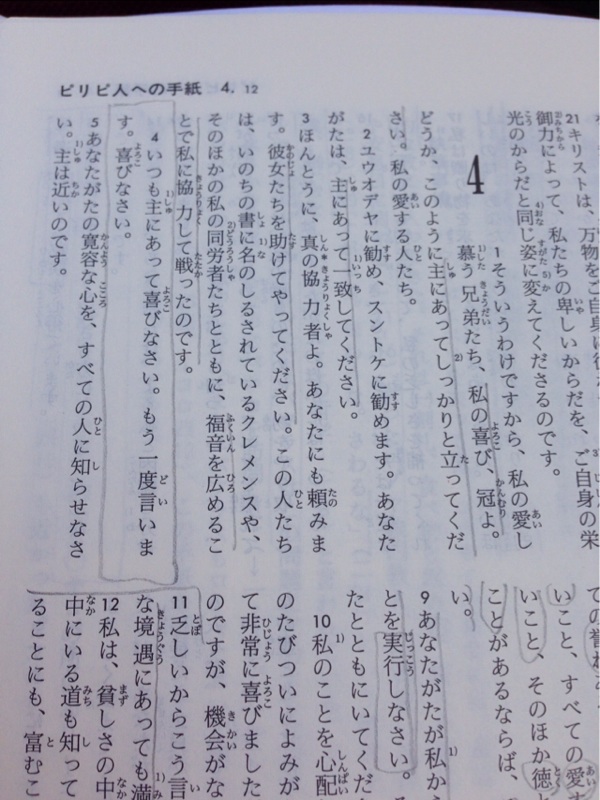 ピリピ人への手紙 4. 12
21 キリストは、万物をご自身に
御力によって、私たちの卑しいからだを、ご自身の栄
光のからだと同じ姿に変えてくださるのです。
4
1 そういうわけですから、私の愛し
慕う兄弟たち、私の喜び、冠よ。
どうか、このように主にあってしっかりと立ってくだ
さい。私の愛する人たち。
2 ユウオデヤに勧め、スントケに勧めます。あなた
がたは、主にあって一致してください。
3 ほんとうに、真の協力者よ。あなたにも頼みま
す。彼女たちを助けてやってください。この人たち
は、いのちの書に名のしるされているクレメンスや、
そのほかの私の同労者たちとともに、福音を広めるこ
とで私に協力して戦ったのです。
4 いつも主にあって喜びなさい。もう一度言いま
す。喜びなさい。
5 あなたがたの寛容な心を、すべての人に知らせなさ
い。主は近いのです。
ての誉れの
いこと、すべての愛す
いこと、そのほか徳と
ことがあるならば、
い。
9 あなたがたが私か
とを実行しなさい。
たとともにいてくだ
10 私のことを心配
のたびついによみが
て非常に喜びました
のですが、機会がな
11 乏しいからこう言
な境遇にあっても満
12 私は、貧しさの中
中にいる道も知って
ることにも、富むこ